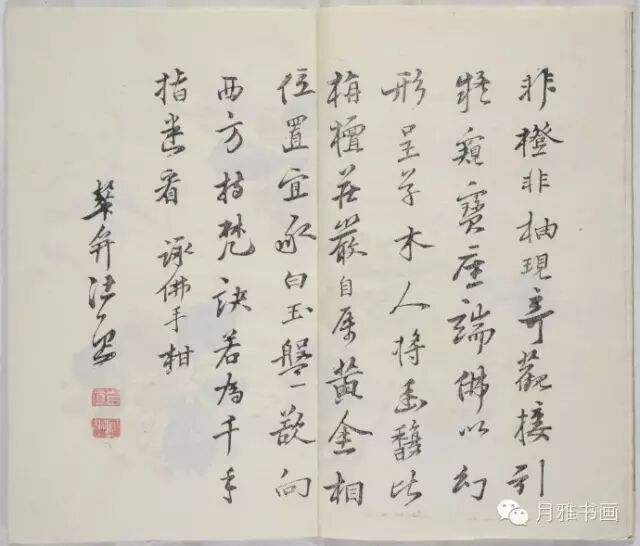 非橙非柚現奇觀接引
疑窺寶座端佛以幻
形呈草木人將馥比
栴檀莊嚴自屬黃金相
位置宜承白玉盤欲向
西方持梵訣若為千手
指迷看 詠佛手柑
月雅书画